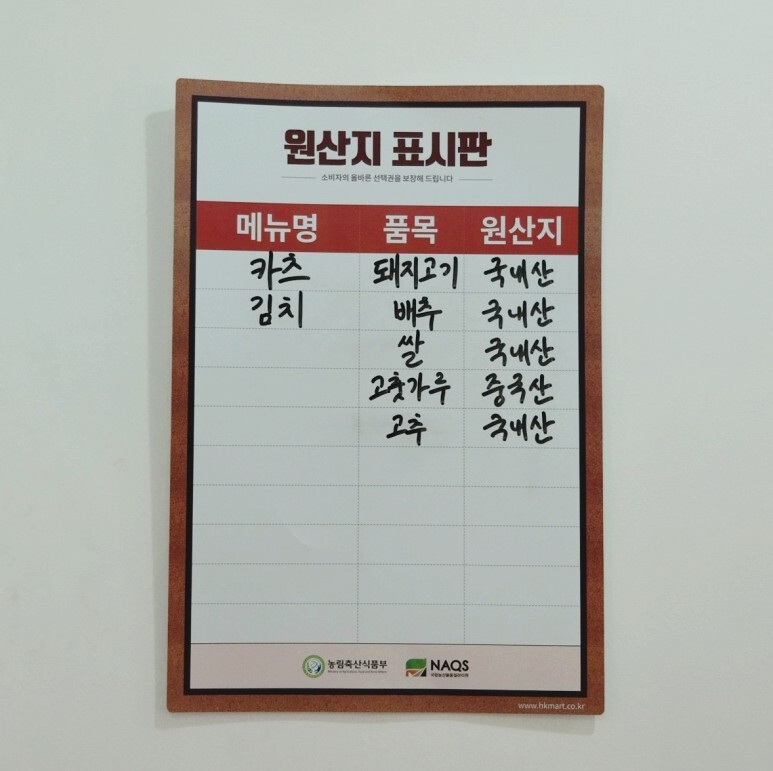 원산지 표시판
소비자의 올바른 선택권을 보장해 드립니다
메뉴명 품목 원산지
카츠 돼지고기 국내산
김치 배추 국내산
쌀 국내산
고춧가루 중국산
고추 국내산
농림축산식품부
NAQS
국립농산물품질관리원
www.hkmart.co.kr